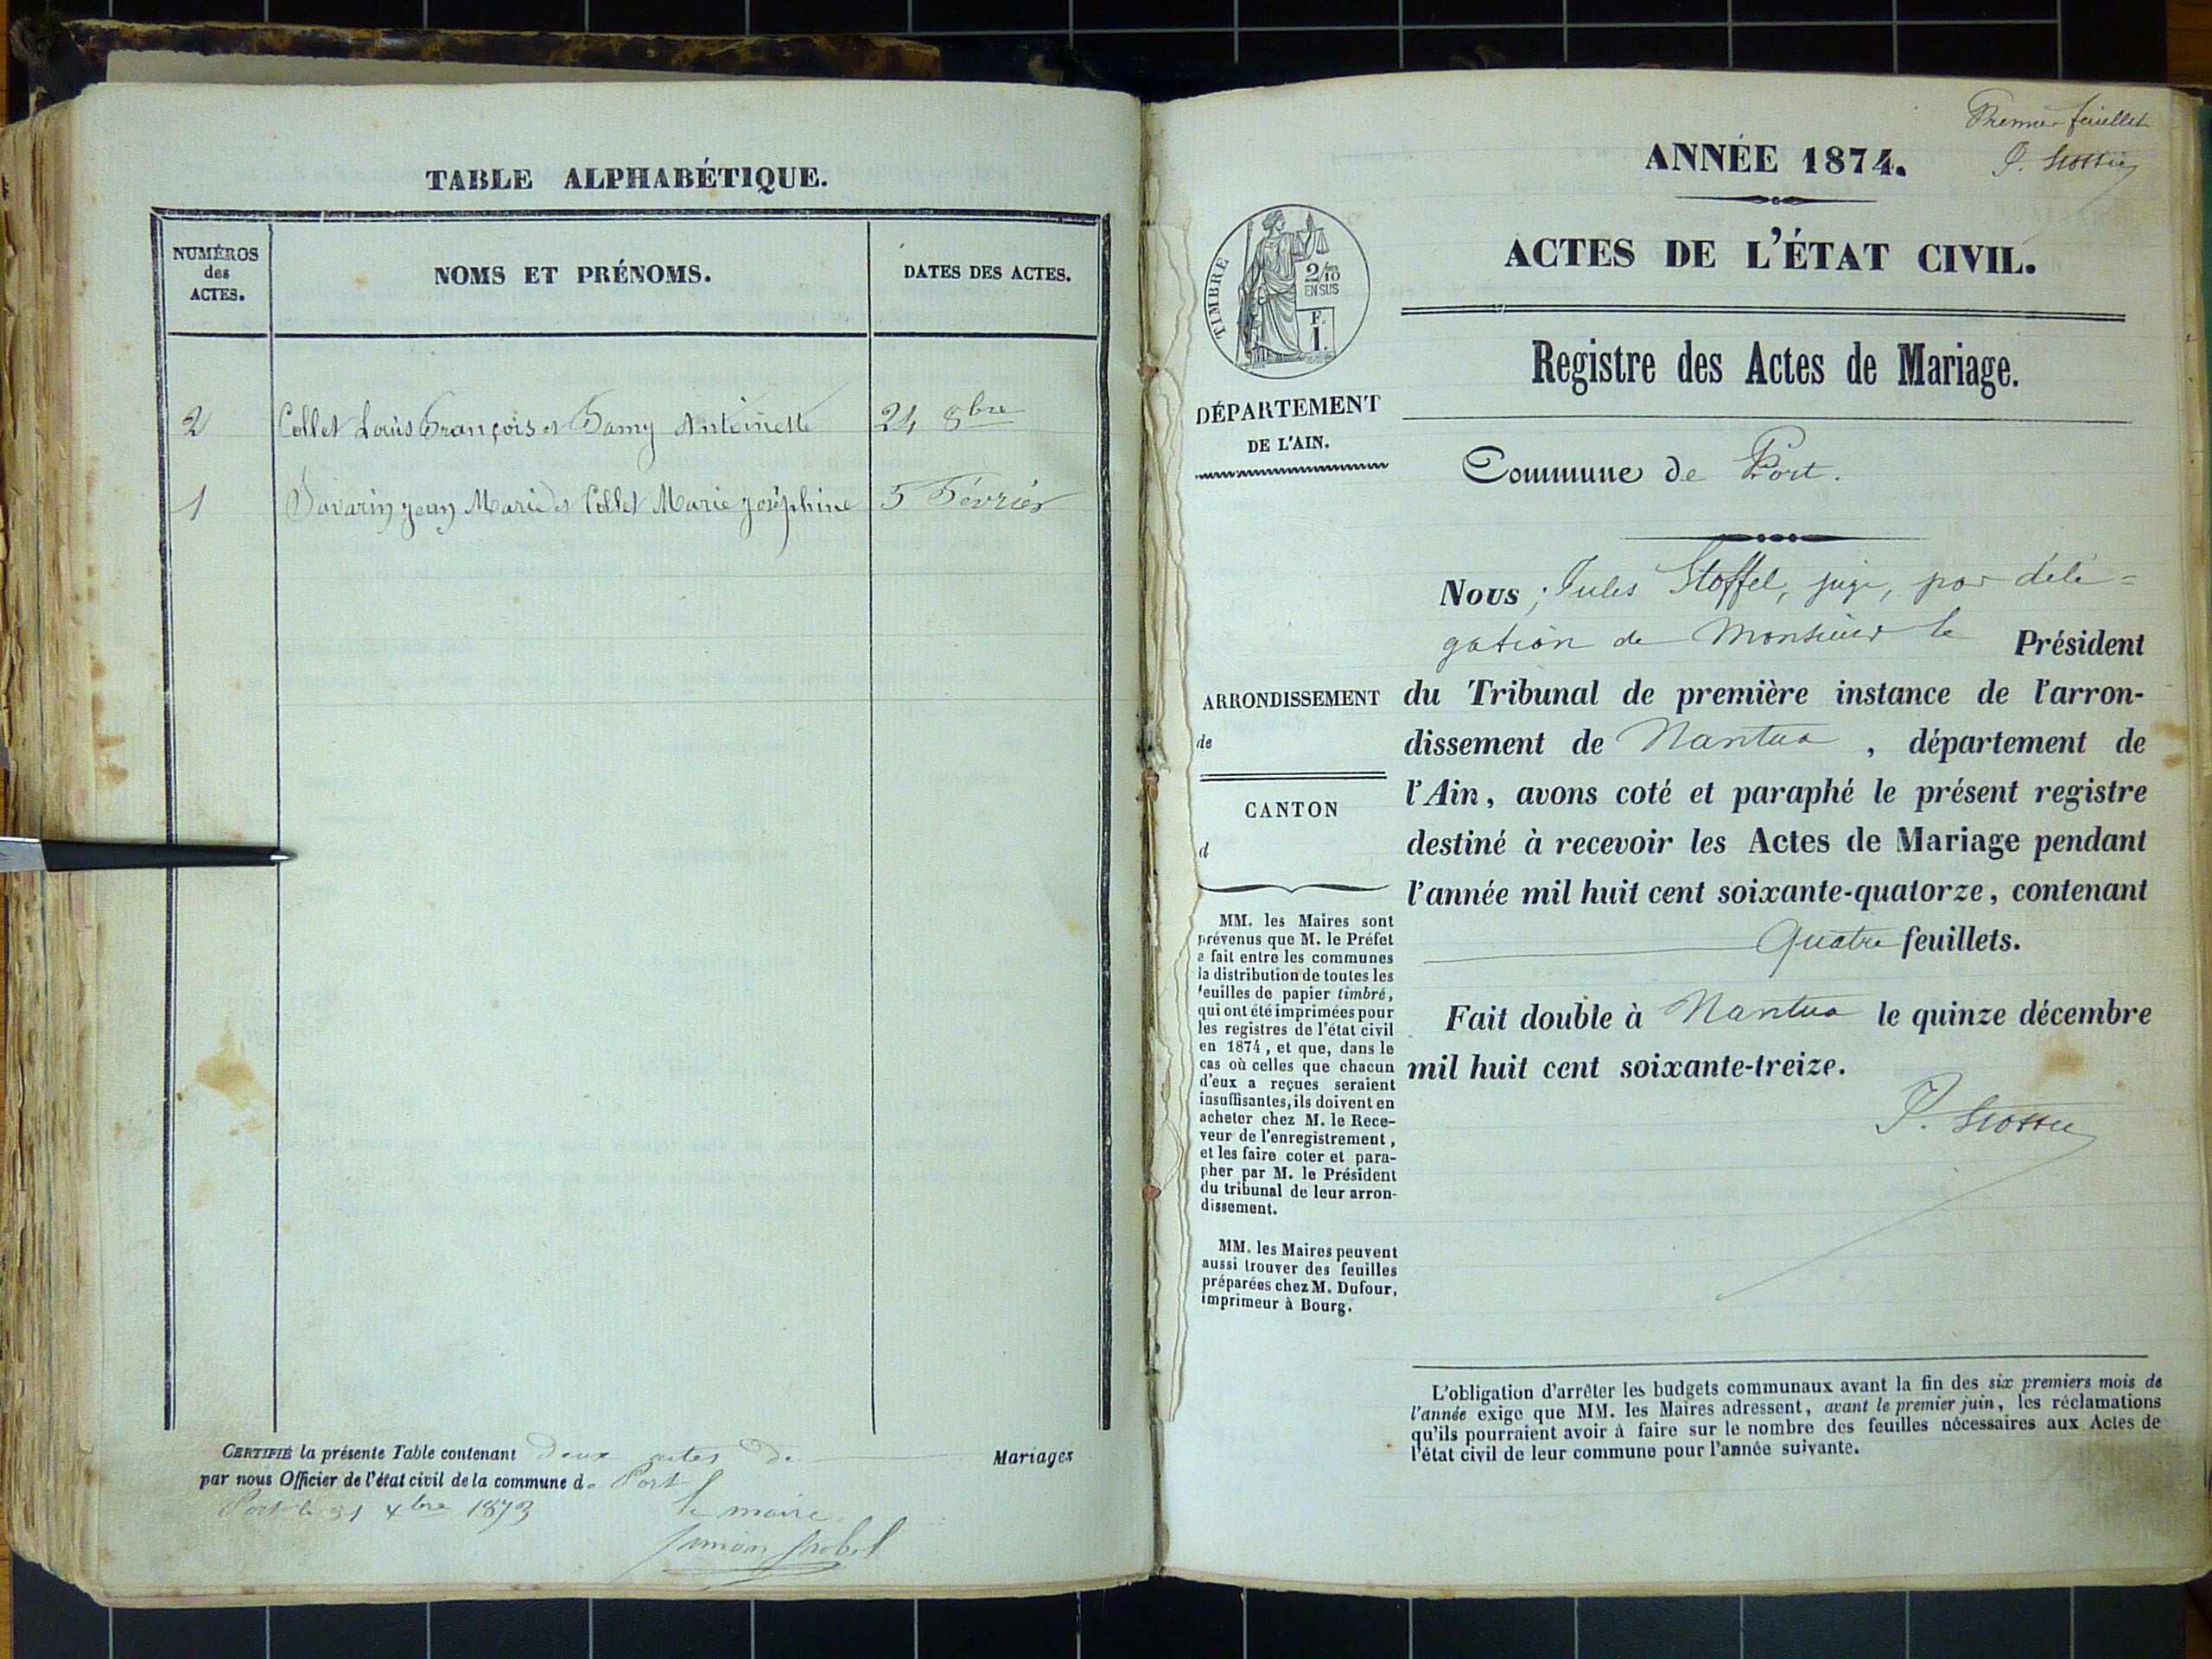 TABLE ALPHABÉTIQUE.
NUMÉROS
des
ACTES.
NOMS ET PRÉNOMS.
DATES DES ACTES.
2 Collet Louis François et Famy Antoinette 24 8bre
1 Savarin jean Marie et Collet Marie joséphine 5 Février
CERTIFIÉ la présente Table contenant deux actes de Mariages
par nous Officier de l'état civil de la commune de Port
Port le 31 xbre 1873 le maire
Premier feuillet
J. Stoffel
ANNÉE 1874.
ACTES DE L'ÉTAT CIVIL.
Registre des Actes de Mariage.
TIMBRE
2/10
EN SUS
F.
1.
DÉPARTEMENT
DE L'AIN.
Commune de Port.
Nous, Jules Stoffel, juge, par délé=
gation de Monsieur le Président
du Tribunal de première instance de l'arron-
dissement de Nantua, département de
l'Ain, avons coté et paraphé le présent registre
destiné à recevoir les Actes de Mariage pendant
l'année mil huit cent soixante-quatorze, contenant
Quatre feuillets.
Fait double à Nantua le quinze décembre
mil huit cent soixante-treize.
J. Stoffel
ARRONDISSEMENT
de
CANTON
d
MM. les Maires sont
prévenus que M. le Préfet
a fait entre les communes
la distribution de toutes les
feuilles de papier timbré,
qui ont été imprimées pour
les registres de l'état civil
en 1874, et que, dans le
cas où celles que chacun
d'eux a reçues seraient
insuffisantes, ils doivent en
acheter chez M. le Rece-
veur de l'enregistrement,
et les faire coter et para-
pher par M. le Président
du tribunal de leur arron-
dissement.
MM. les Maires peuvent
aussi trouver des feuilles
préparées chez M. Dufour,
imprimeur à Bourg.
L'obligation d'arrêter les budgets communaux avant la fin des six premiers mois de
l'année exige que MM. les Maires adressent, avant le premier juin, les réclamations
qu'ils pourraient avoir à faire sur le nombre des feuilles nécessaires aux Actes de
l'état civil de leur commune pour l'année suivante.